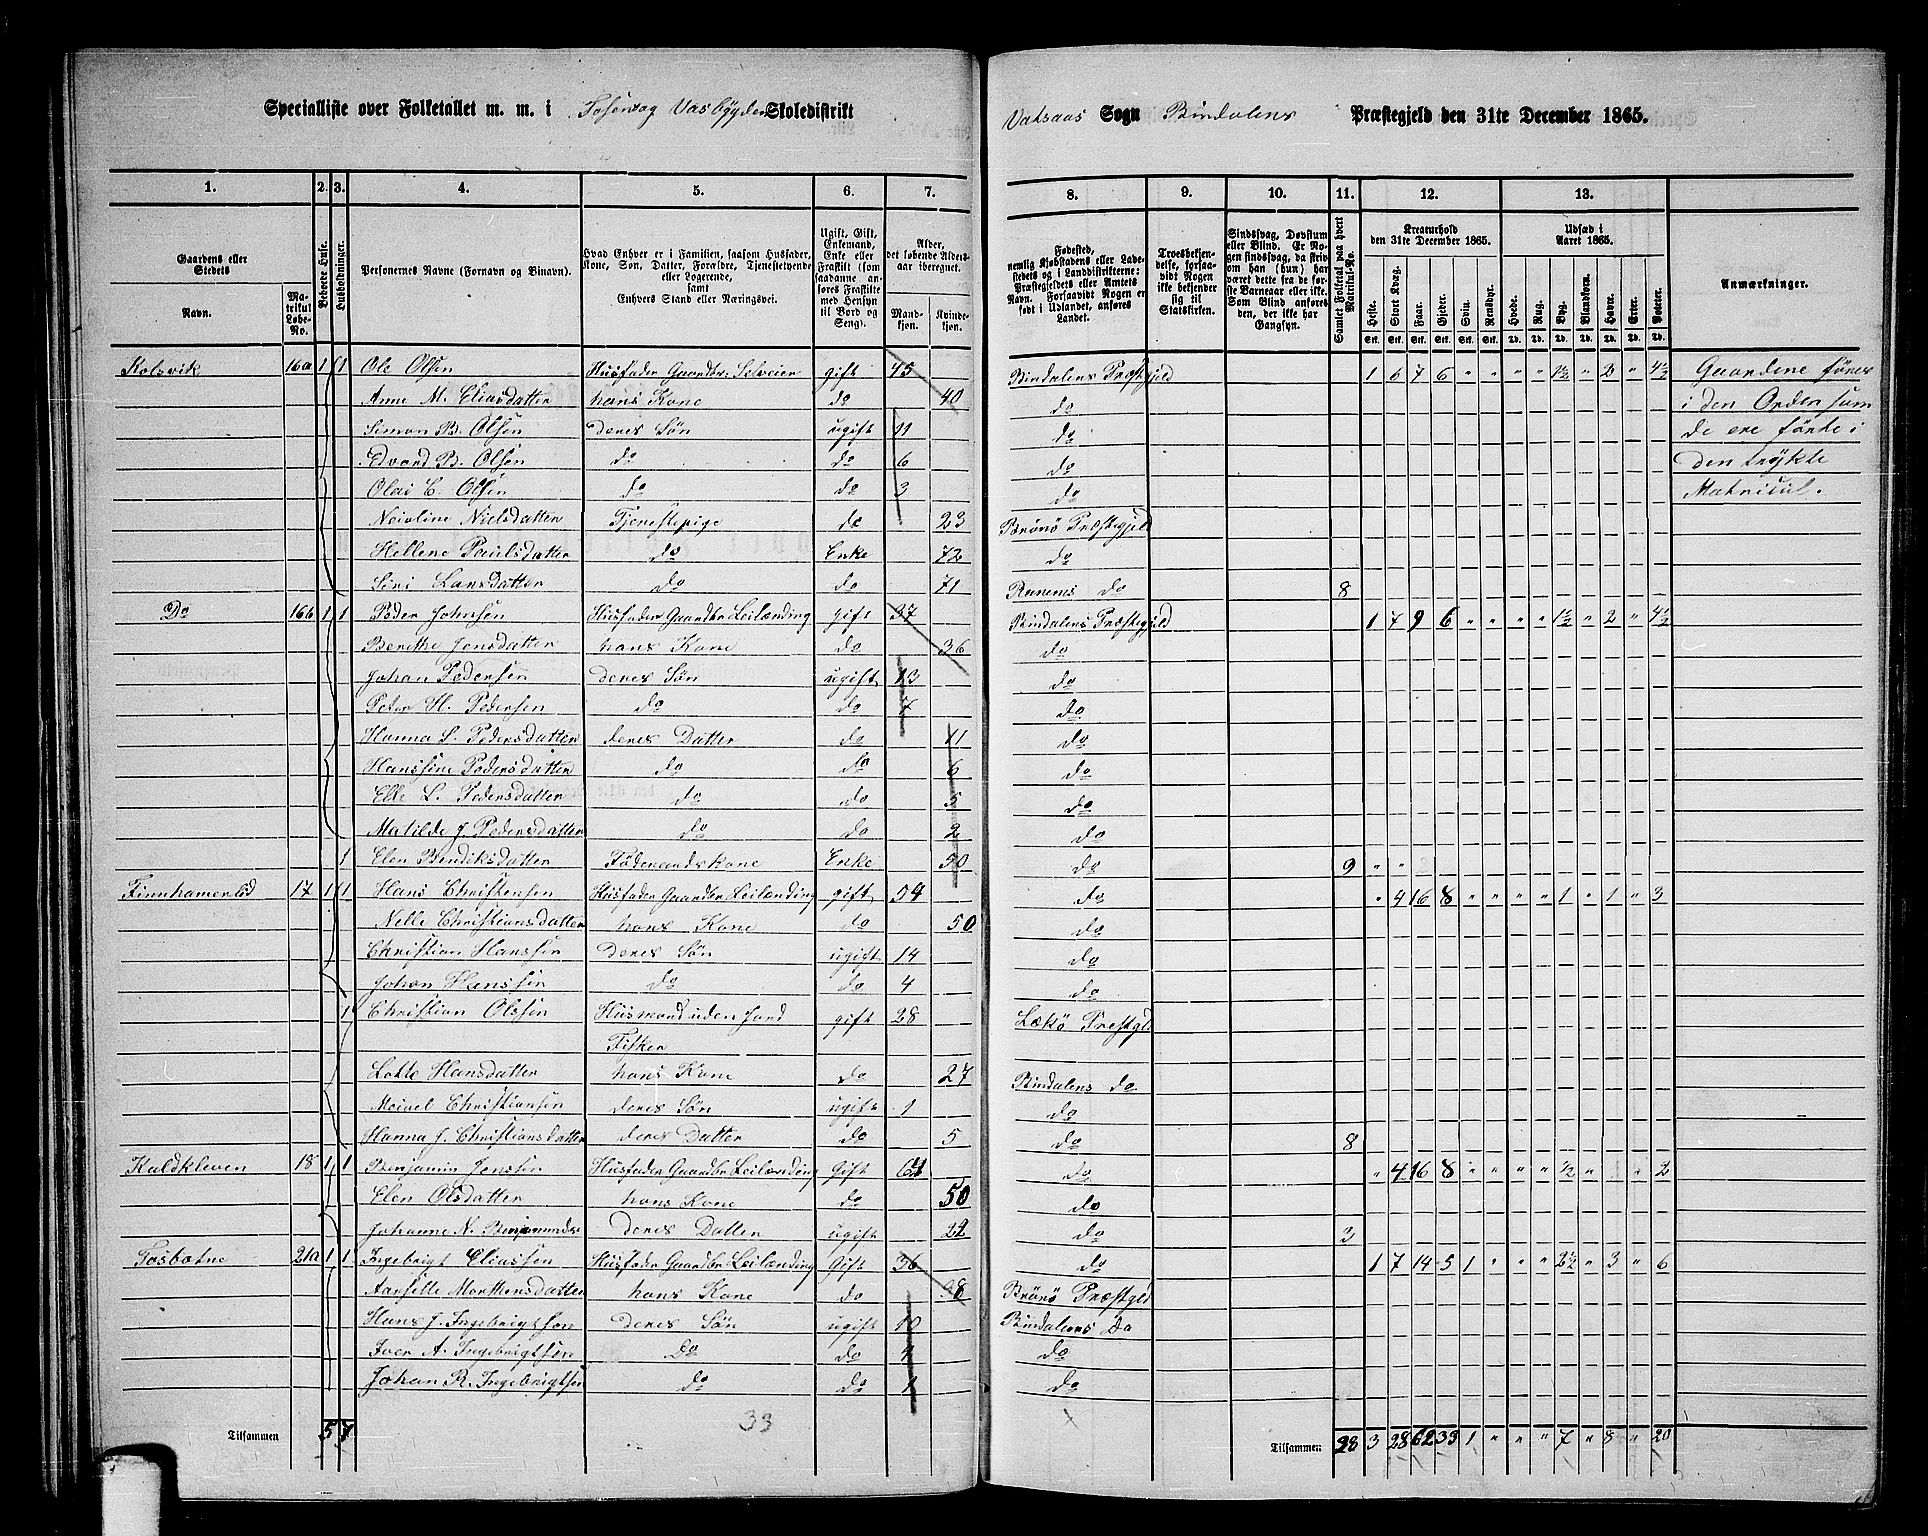 Specialliste over Folketallet m. m. i Tosen og Vasbygden Skoledistrikt Vatsaas Sogn Bindalens Præstegjeld den 31te December 1865.
1. 2. 3. 4. 5. 6. 7. 8. 9. 10. 11. 12. 13.
Gaardens eller Stedets
Navn. Matrikul Løbe-No.
Beboede Huse.
Husholdninger.
Personernes Navne (Fornavn og Binavn).
Hvad Enhver er i Familien, saasom Husfader, Kone, Søn, Datter, Forældre, Tjenestetyende eller Logerende, samt Enhvers Stand eller Næringsvei.
Ugift, Gift, Enkemand, Enke eller Fraskilt (som saadanne anføres Fraskilte med Hensyn til Bord og Seng).
Alder, det løbende Alders-aar iberegnet.
Mandkjøn. Kvindekjøn.
Fødested, nemlig Kjøbstadens eller Ladestedets og i Landdistrikterne: Præstegjeldets eller Amtets Navn. Forsaavidt Nogen er født i Udlandet, anføres Landet.
Troesbekjendelse, forsaavidt Nogen ikke bekjender sig til Statskirken.
Sindssvag, Døvstum eller Blind. Er Nogen sindssvag, da skriv om han (hun) har været dette fra de første Barneaar eller ikke. Som Blind anføres den, der ikke har Gangsyn.
Samlet Folketal paa hvert Matrikul-No.
Kreaturhold den 31te December 1865.
Heste. Stort Kvæg. Faar. Gjeder. Svin. Rensdyr.
Udsæd i Aaret 1865.
Hvede. Rug. Byg. Blandkorn. Havre. Erter. Poteter.
Stk. Stk. Stk. Stk. Stk. Stk. Td. Td. Td. Td. Td. Td. Td.
Anmærkninger.
Kolsvik 16a 1 1 Ole Olsen Husfader Gaardbr. Selveier gift 45 Bindalens Præstegjeld 1 6 7 6 " " " " 1½ " 2 " 4½ Gaardene føres
Anne M. Eliasdatter hans Kone do 40 do i den Orden som
Simon B. Olsen deres Søn ugift 11 do de ere førte i
Edvard B. Olsen do do 6 do den trykte
Olai C. Olsen do do 3 do Matricul.
Nicoline Nielsdatter Tjenestepige do 23 Brönö Præstegjeld
Hellene Paulsdatter do Enke 72 do
Siri Larsdatter do do 71 Ranens do 8
Do 16b 1 1 Peder Johnsen Husfader Gaardbr Leilænding gift 37 Bindalens Præstegjeld 1 7 9 6 " " " " 1½ " 2 " 4½
Berethe Jensdatter hans Kone do 36 do
Johan Pedersen deres Søn ugift 13 do
Peter H. Pedersen do do 7 do
Hanna L. Pedersdatter deres Datter do 11 do
Hanssine Pedersdatter do do 6 do
Elle L. Pedersdatter do do 5 do
Matilde J. Pedersdatter do do 2 do
1 Elen Bendiksdatter Föderaadskone Enke 50 do 9 " "
Finnhamerlid 17 1 1 Hans Christensen Husfader Gaardbr Leilænding gift 54 do " 4 16 8 " " " " 1 " 1 " 3
Nelle Christiansdatter hans Kone do 50 do
Christian Hanssen deres Søn ugift 14 do
Johan Hanssen do do 4 do
1 Christian Olssen Husmand uden Jord gift 28 Lekö Prestgld
Fisker
Lotte Hansdatter hans Kone do 27 Bindalens do
Meinel Christiansen deres Søn ugift 1 do
Hanna J. Christiansdatter deres Datter do 5 do 8
Kaldkleven 18 1 1 Benjamin Jenssen Husfader Gaardbr Leilænding Gift do " 4 16 8 " " " " ½ " " 2
Elen Olsdatter hans Kone do 50 do
Johanne N. deres Datter ugift do 3
Tosbotne 21a 1 1 Ingebrigt Eliassen Husfader Gaardbr Leilænding Gift 36 do 1 7 14 5 1 " " " 2½ " 3 " 6
Aarselle Morthensdatter hans Kone do 38 Brönö Præstgld
Hans J. Ingebrigtson deres Søn ugift 10 Bindalens Do
Iver A. Ingebrigtsen Do do 4 do
Johan R. Ingebrigtsen do do 1 do
Tilsammen 5 7 33 Tilsammen 28 3 28 62 33 1 " " " 7 " 8 " 20